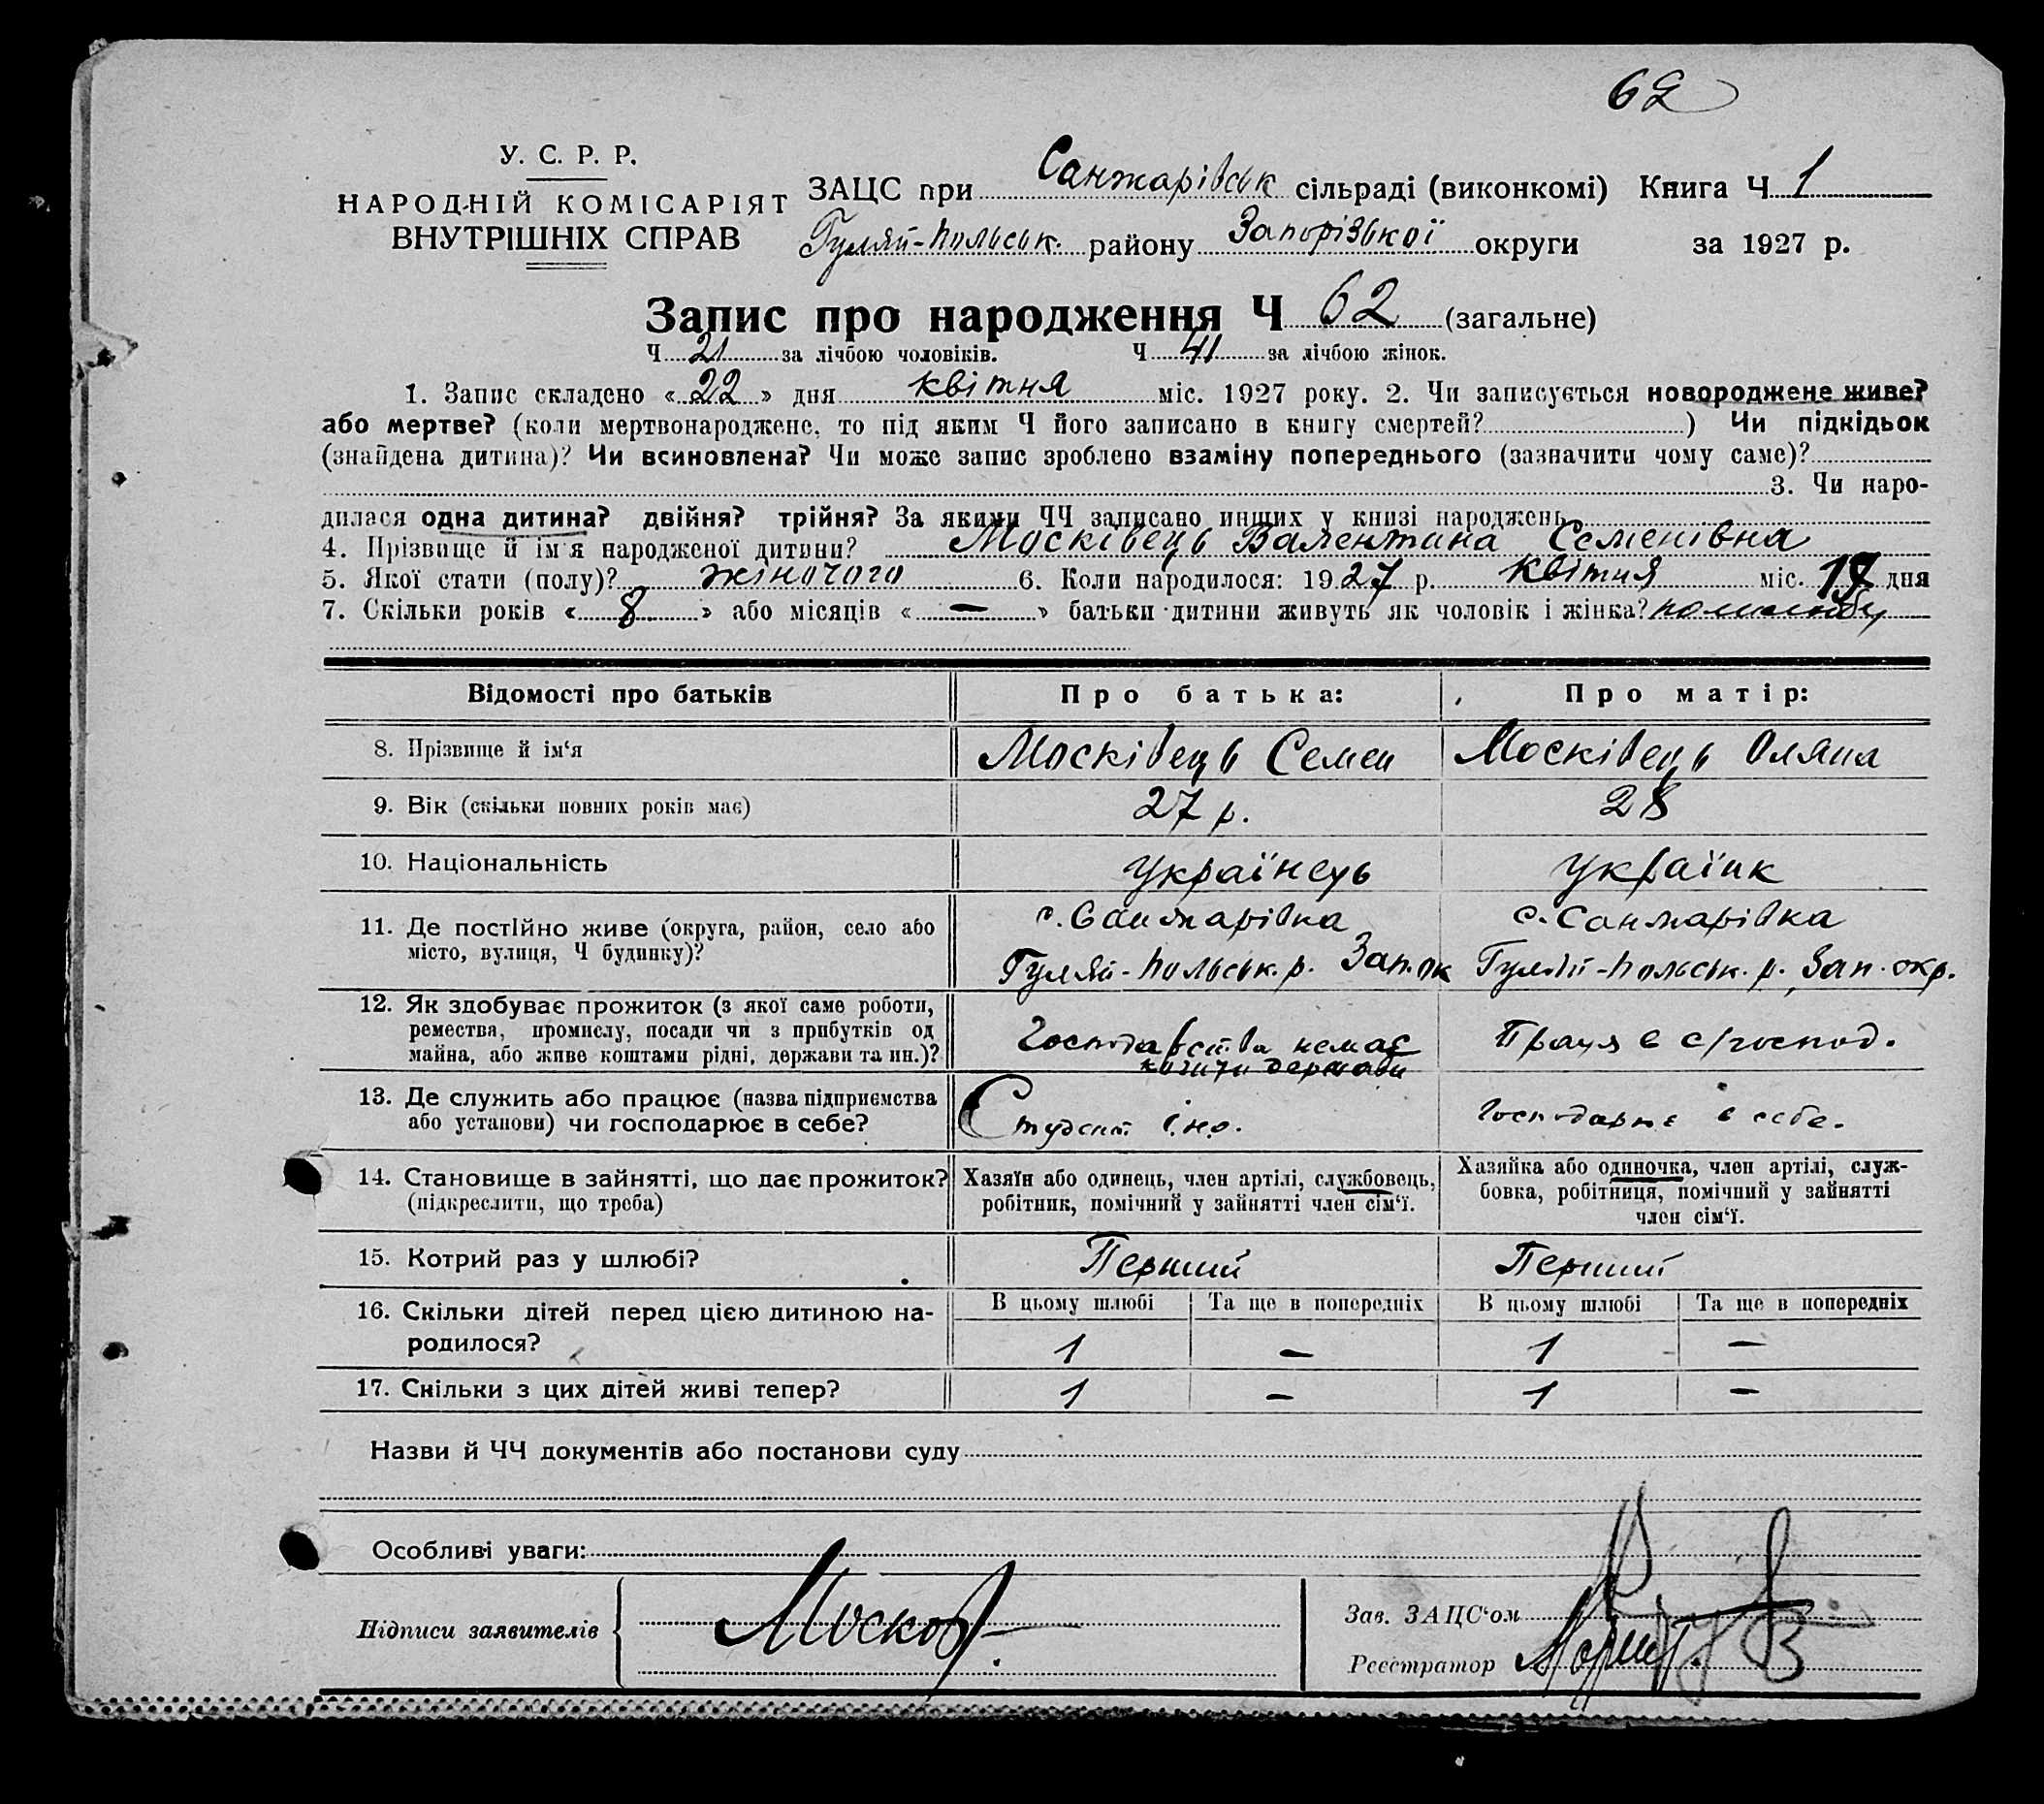 62
У. С. Р. Р.
НАРОДНІЙ КОМІСАРІЯТ
ВНУТРІШНІХ СПРАВ
ЗАЦС при Санжарівськ сільраді (виконкомі) Книга Ч 1
Гуляй-Польськ. району Запорізької округи за 1927 р.
Запис про народження Ч 62 (загальне)
Ч 21 за лічбою чоловіків. Ч 41 за лічбою жінок.
1. Запис складено «22» дня квітня міс. 1927 року. 2. Чи записується новороджене живе?
або мертве? (коли мертвонароджене, то під яким Ч його записано в книгу смертей? ) Чи підкідьок
(знайдена дитина)? Чи всиновлена? Чи може запис зроблено взаміну попереднього (зазначити чому саме)?
3. Чи наро-
дилася одна дитина? двійня? трійня? За якими ЧЧ записано инших у книзі народжень
4. Прізвище й ім'я народженої дитини? Москівець Валентина Семенівна
5. Якої стати (полу)? жіночого 6. Коли народилося: 1927 р. квітня міс. дня
7. Скільки років «8» або місяців «—» батьки дитини живуть як чоловік і жінка?
Відомості про батьків Про батька: Про матір:
8. Прізвище й ім‘я Москівець Семен Москівець Оляна
9. Вік (скільки повних років має) 27 р. 28
10. Національність Українець Українк
11. Де постійно живе (округа, район, село або місто, вулиця, Ч будинку)? с. Санжарівка с. Санжарівка
Гуляй-Польськ. р. Зап. ок Гуляй-Польськ. р. Зап. окр.
12. Як здобуває прожиток (з якої саме роботи,
ремества, промислу, посади чи з прибутків од
майна, або живе коштами рідні, держави та ин.)? Господарства немає Праця в с/господ.
кошти держави
13. Де служить або працює (назва підприємства
або установи) чи господарює в себе? Студент і.н.о. Господарює в себе.
14. Становище в зайнятті, що дає прожиток?
(підкреслити, що треба)
Хазяїн або одинець, член артілі, службовець,
робітник, помічний у зайнятті член сім‘ї.
Хазяйка або одиночка, член артілі, служ-
бовка, робітниця, помічний у зайнятті
член сім‘ї.
15. Котрий раз у шлюбі? Перший Перший
16. Скільки дітей перед цією дитиною на-
родилося?
В цьому шлюбі Та ще в попередніх В цьому шлюбі Та ще в попередніх
1 — 1 —
17. Скільки з цих дітей живі тепер? 1 — 1 —
Назви й ЧЧ документів або постанови суду
Особливі уваги:
Підписи заявителів
Зав. ЗАЦС‘ом
Реєстратор